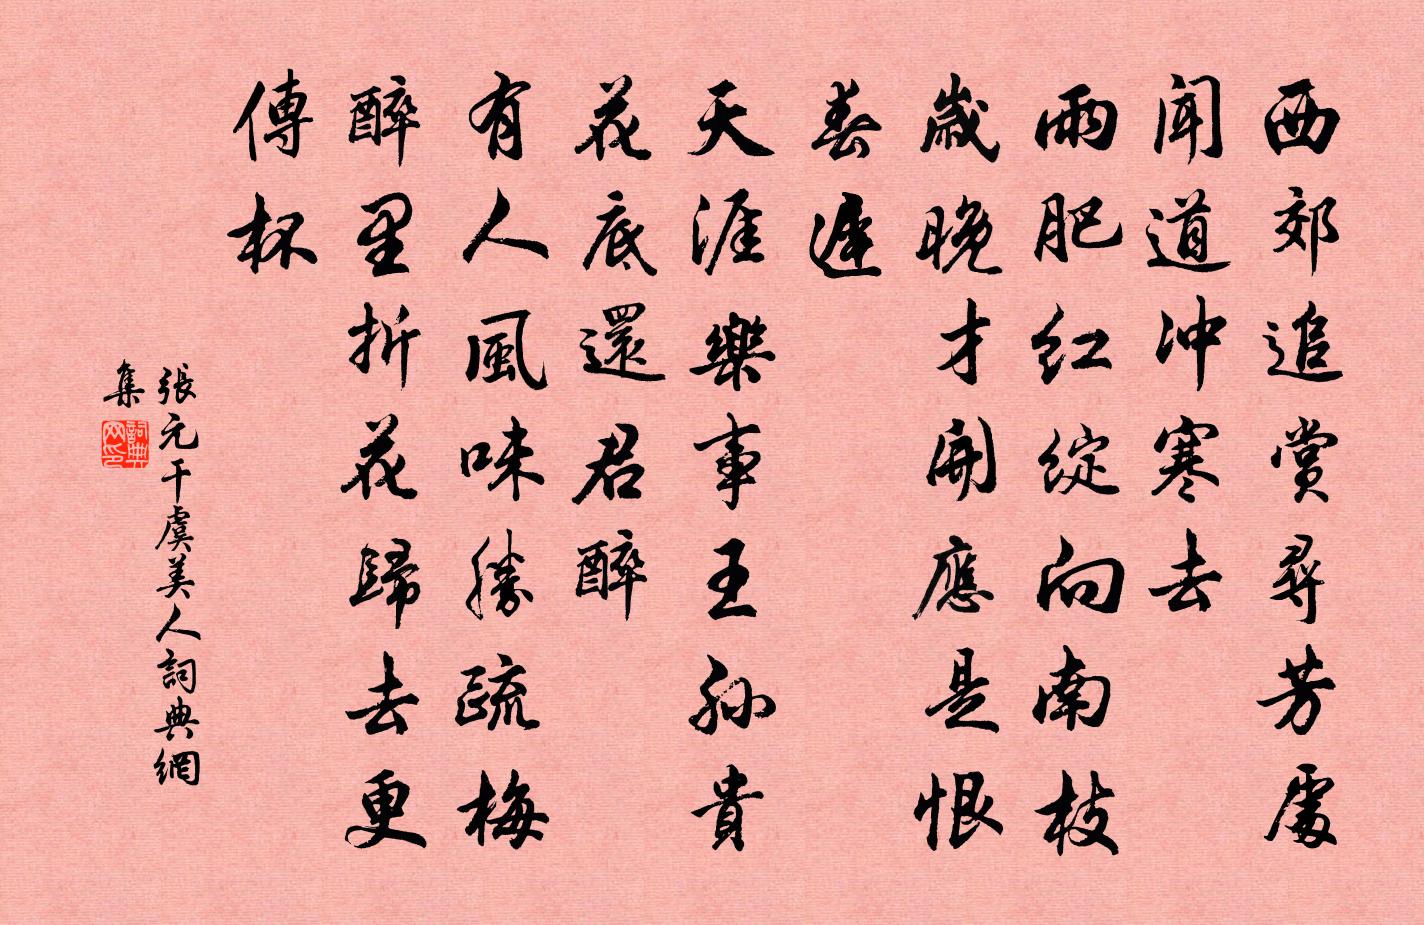 西郊追賞尋芳處
聞道沖寒去
雨肥紅綻向南枝
歲晚才開應是恨
春遲
天涯樂事王孫貴
花底還君醉
有人風味勝疏梅
醉里折花歸去更
傳杯
張元干虞美人詞典網
集
詞典
网印